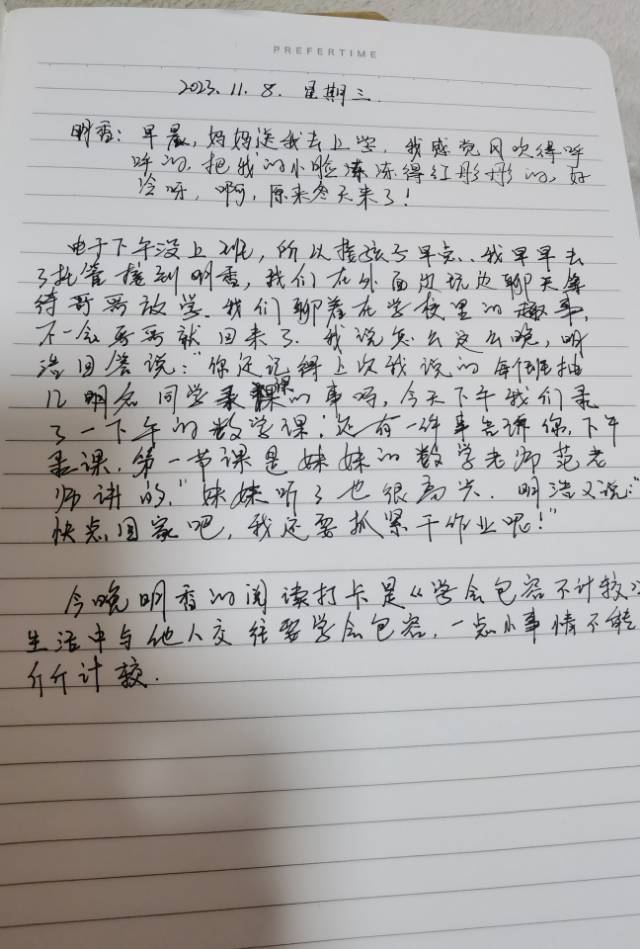 PREFERTIME
2023.11.8. 星期三.
明香：早晨，妈妈送我去上学，我感觉风吹得呼
呼的，把我的小脸冻得红彤彤的，好
冷呀，啊，原来冬天来了！
由于下午没上班，所以接孩子早些，我早早去
了托管接到明香，我们在外面边玩边聊天等
待哥哥放学，我们聊着在学校里的趣事，
不一会哥哥就回来了，我说怎么这么晚，明
浩回答说：“你还记得上次我说的每个班抽
几名同学录课的事吗，今天下午我们录
了一下午的数学课；还有一件事告诉你，下午
录课，第一节课是妹妹的数学老师范老
师讲的，”妹妹听了也很高兴，明浩又说：“
快点回家吧，我还要抓紧干作业呢！”
今晚明香的阅读打卡是《学会包容不计较》
生活中与他人交往要学会包容，一点小事情不能
斤斤计较.